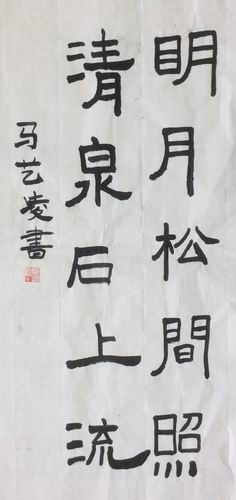 明月松間照
清泉石上流
马艺凌書